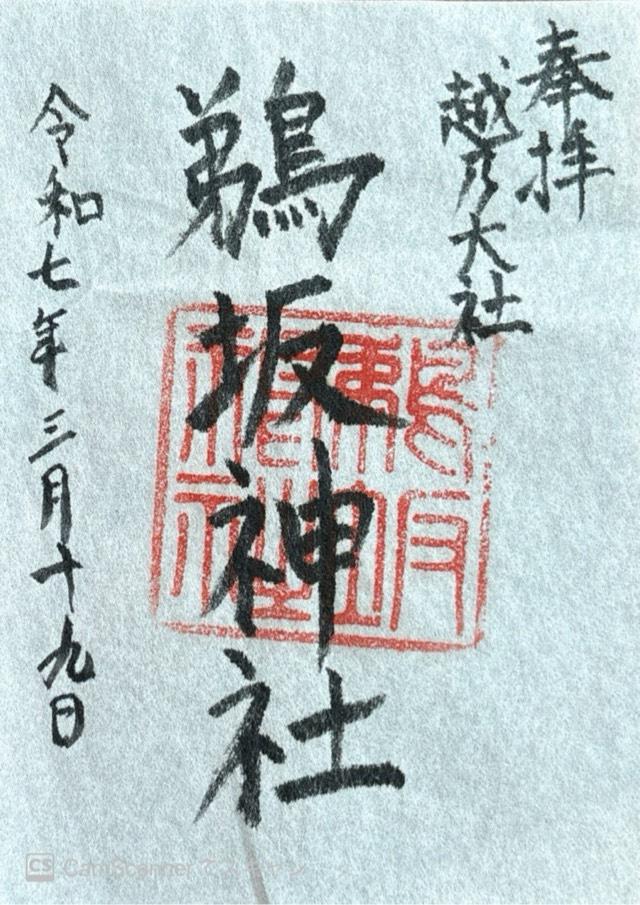 奉拝
越乃大社
鵜坂神社
鵜坂神社
令和七年三月十九日
CS CamScanner でスキャン